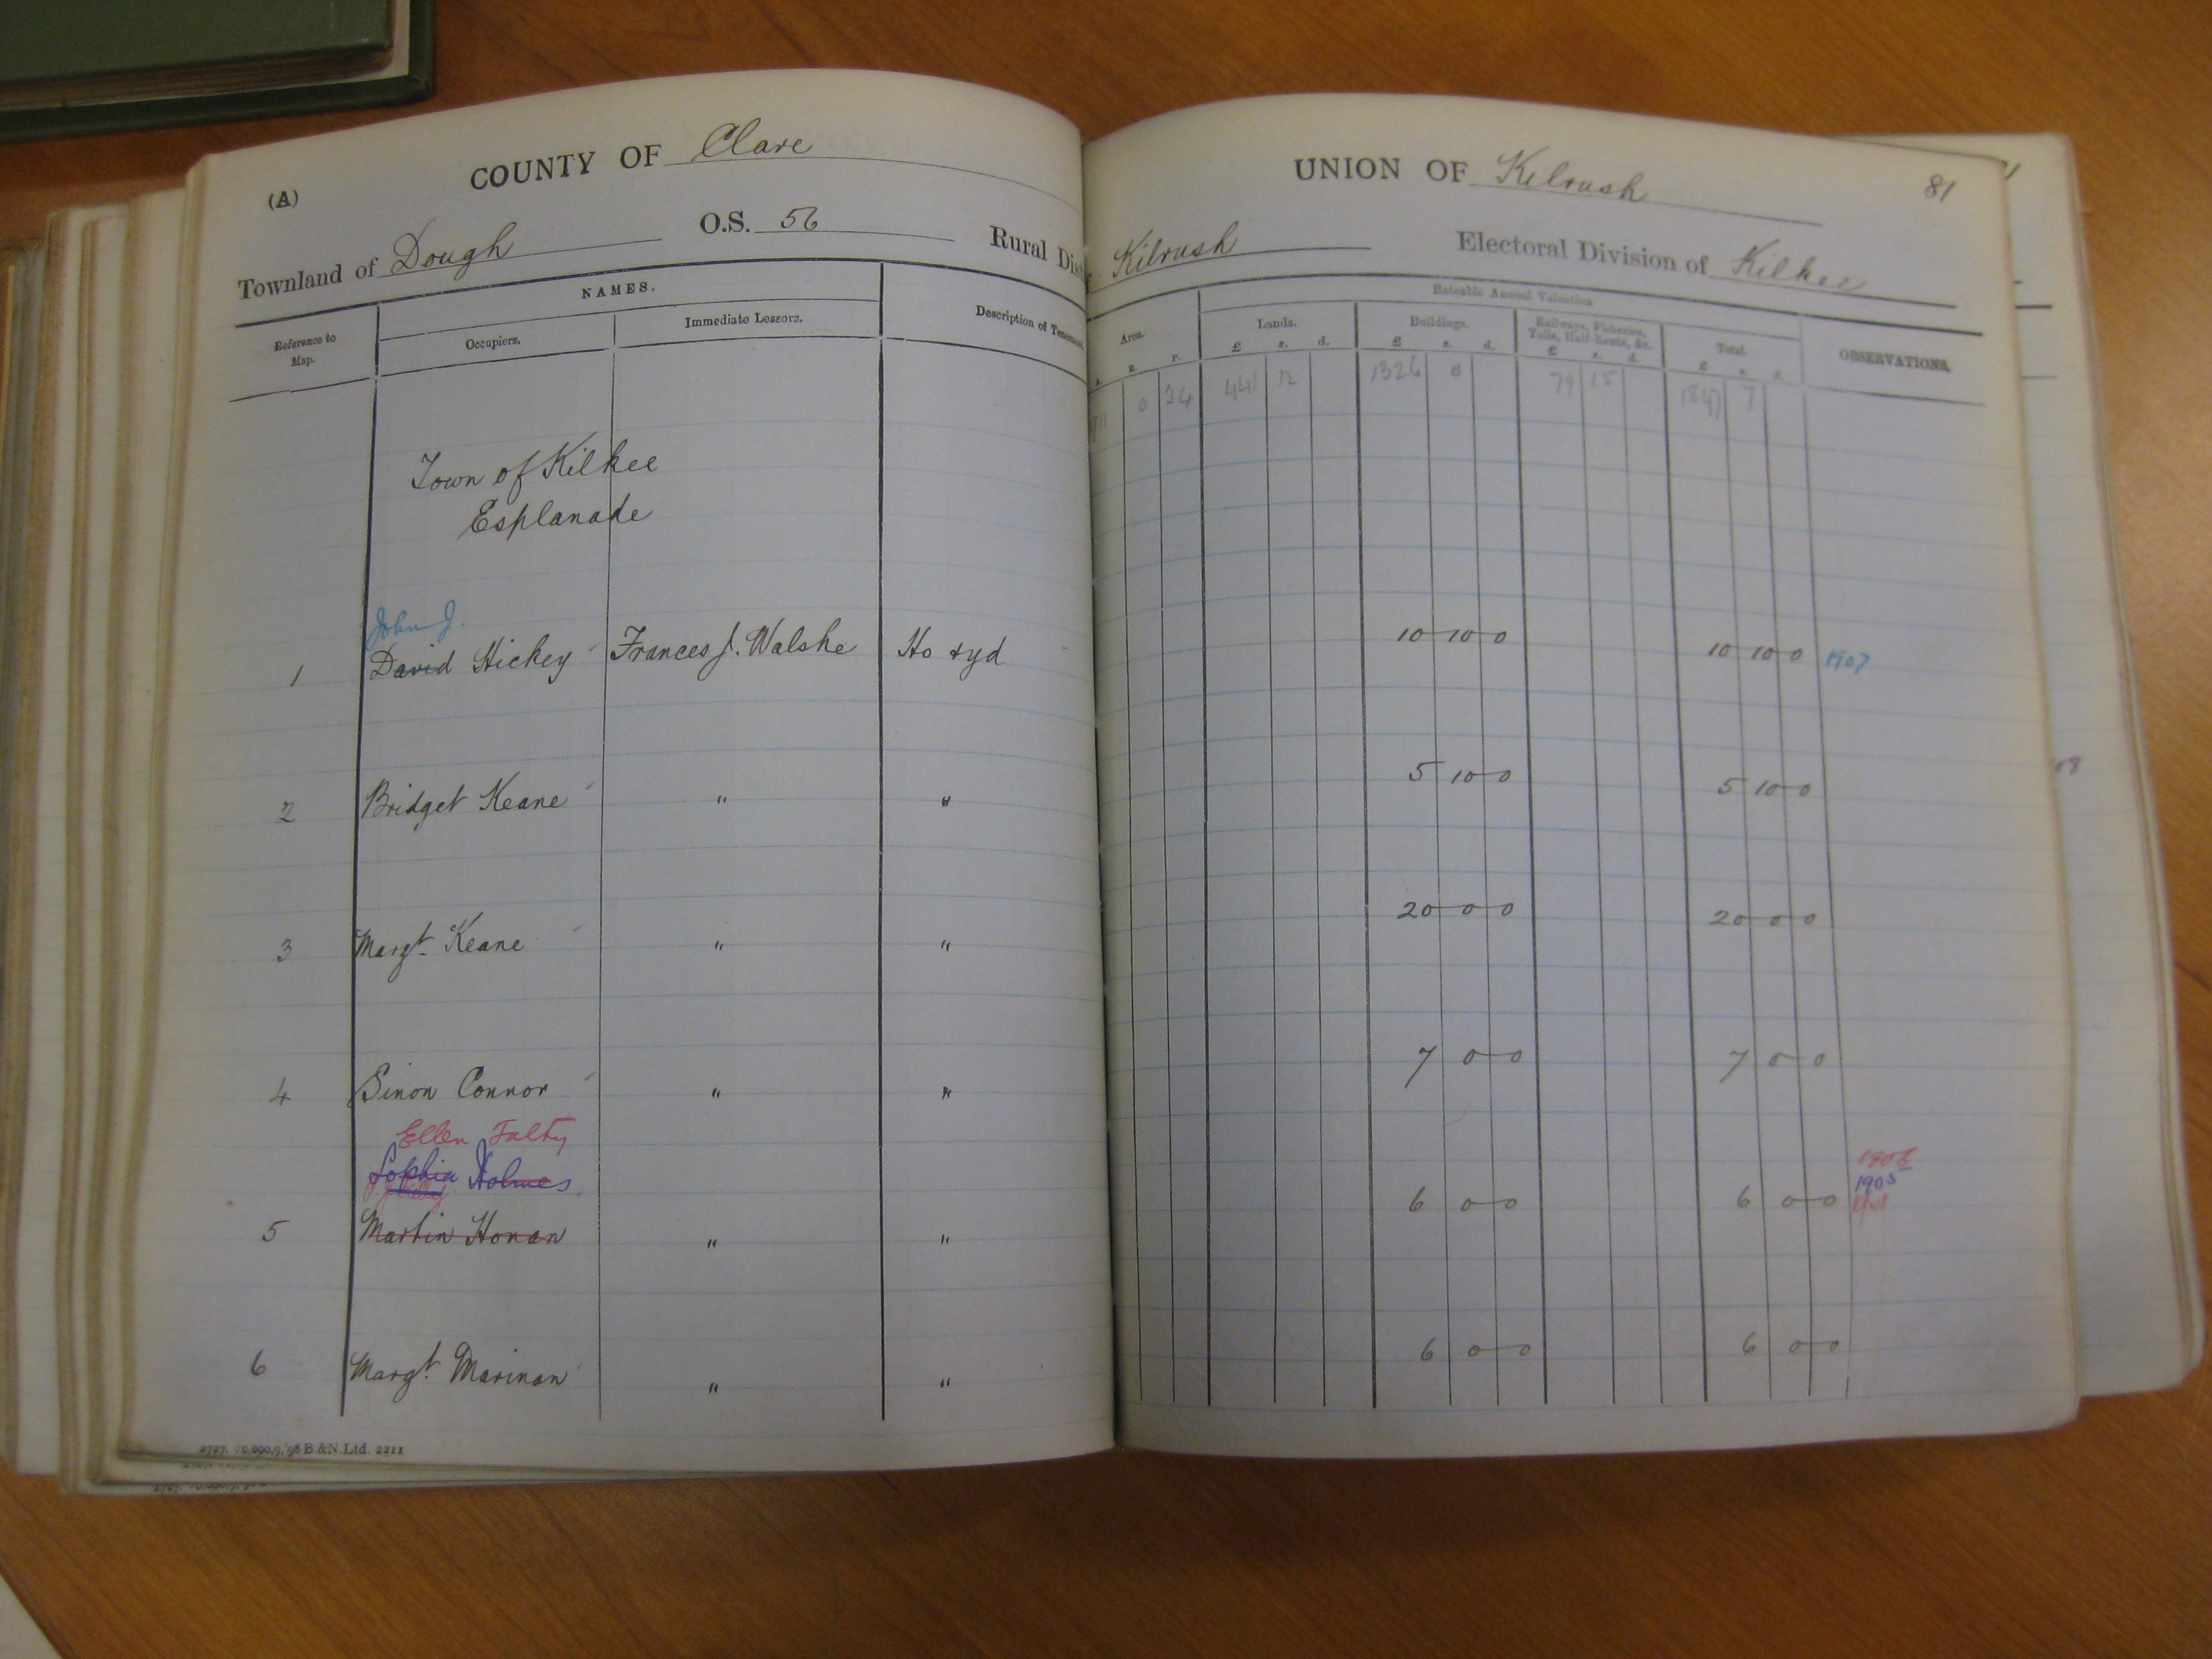 (A) COUNTY OF Clare
Townland of Dough O.S. 56 Rural Dist
NAMES.
Reference to Map. Occupiers. Immediate Lessors. Description of Tenement
Town of Kilkee
Esplanade
John J.
1 David Hickey Frances J. Walshe Ho & yd
2 Bridget Keane " "
3 Margt. Keane " "
4 Sinon Connor " "
Ellen Falty
Sophia Holmes
5 Martin Honan " "
6 Margt. Marinan " "
2727. 10,000.9.'98 B.&N. Ltd. 2211
UNION OF Kilrush 81
Kilrush Electoral Division of Kilkee
Rateable Annual Valuation
Area. Lands. Buildings. Railways, Fisheries, Tolls, Half-Rents, &c. Total. OBSERVATIONS.
A. R. P. £ s. d. £ s. d. £ s. d. £ s. d.
0 34 441 12 1326 0 79 15 1847 7
10 10 0 10 10 0 1907
5 10 0 5 10 0
20 0 0 20 0 0
7 0 0 7 0 0
1906
1905
6 0 0 6 0 0
6 0 0 6 0 0